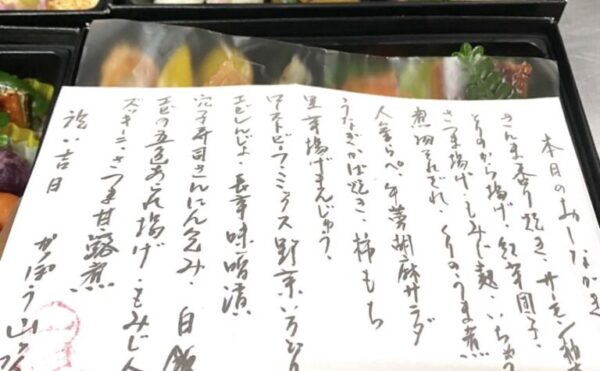 本日のおしながき
さんま香り焼き、サーモン
とりのから揚げ、紅芋団子、
さつま揚げ、もみじ麩、いち
煮物それぞれ、くりのうま煮
人参らぺ、牛蒡胡麻サラダ
うなぎかば焼き、柿もち
里芋揚げまんじゅう、
ローストビーフ、ミックス野菜いろどり
エビしんじょ、長芋味噌漬
穴子寿司さんにん包み、白飯
エビの五色あられ揚げ、もみじ人
ズッキーニ、さつま甘露煮
祝い吉日
かっぽう山